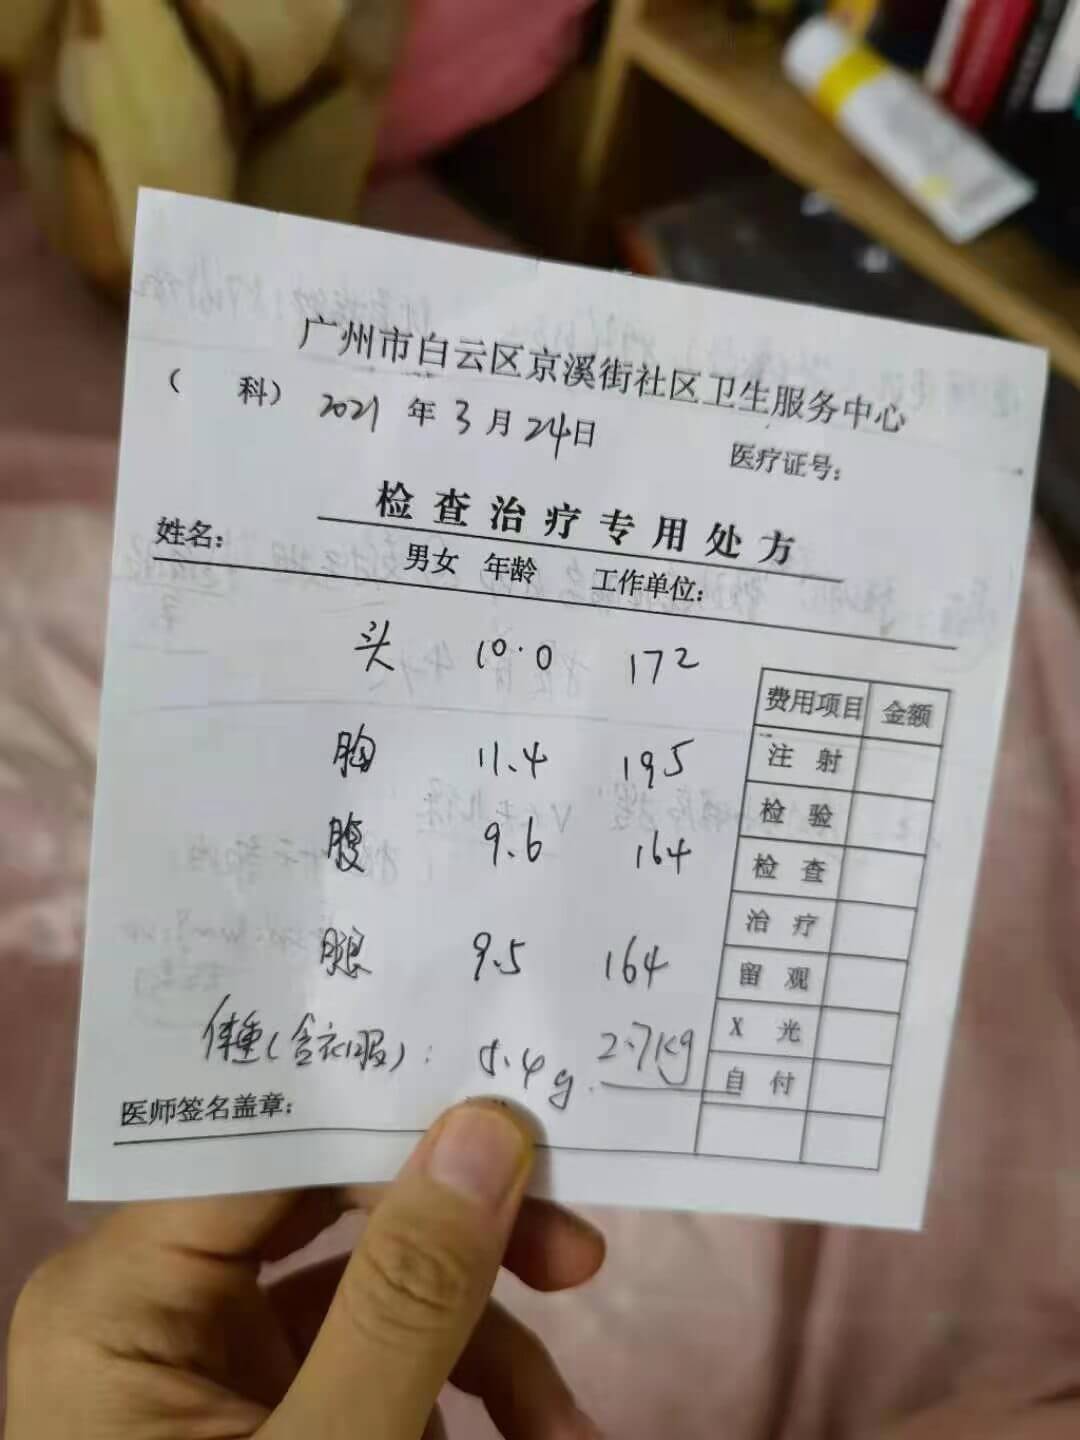 广州市白云区京溪街社区卫生服务中心
（ 科） 2021 年 3 月 24日
医疗证号：
检查治疗专用处方
姓名： 男女 年龄 工作单位：
头 10.0 172
胸 11.4 195
腹 9.6 164
腿 9.5 164
体重（含衣服）： 5.4g. 2.7Kg
医师签名盖章：
费用项目 金额
注 射
检 验
检 查
治 疗
留 观
X 光
自 付